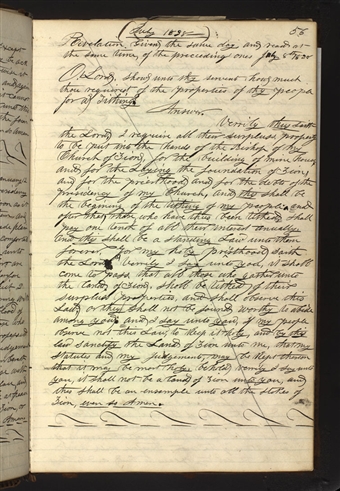 (July 1838 56
Revelation, Given the same day, and read at
the same time, of the preceding ones July 8th 1838
O Lord, show unto thy servent how much
thou requirest of the properties of thy people
for a Tithing?
Answer.
Verrily thus saith
the Lord, I require all their surpluss property
to be put into the hands of the Bishop of my
Church of Zion, for the building of mine house,
and for the Laying the foundation of Zion,
and for the priesthood, and for the debts of the
presidency of my Church, and this shall be
the begining of the tithing of my people, and
after that, those, who have thus been tithed, shall
pay one tenth of all their interest anually.
And this shall be a standing Law unto them
forever, for my holy priesthood, saith
the Lord, Verrily I say unto you, it shall
come to pass, that all those who gather unto
the land of Zion, shall be tithed of their
surpluss properties, and shall observe this
Law, or they shall not be found worthy to abide
among you. And I say unto you, if my people
observe not this Law, to keep it holy, and by this
law sanctify the Land of Zion unto me, that my
statutes and my Judgements, may be kept thereon
that it may be most holy, behold, verrily I say unto
you, it shall not be a land of Zion unto you, and
this shall be an ensample unto all the Stakes of
Zion, even so Amen.